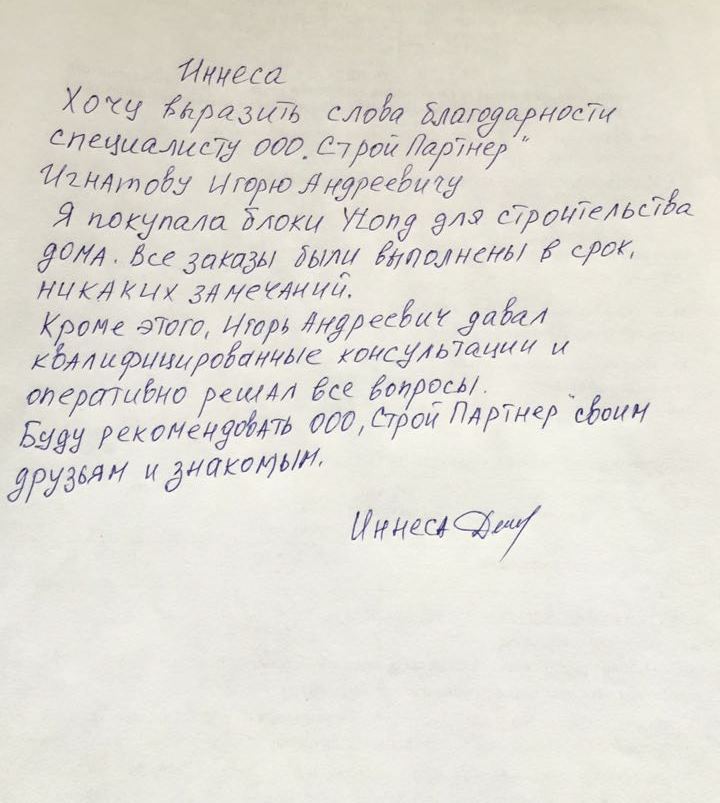 Иннеса
Хочу выразить слова благодарности
специалисту ООО „Строй Партнер"
Игнатову Игорю Андреевичу
Я покупала блоки для строительства
дома. Все заказы были выполнены в срок,
никаких замечаний.
Кроме этого, Игорь Андреевич давал
квалифицированные консультации и
оперативно решал все вопросы.
Буду рекомендовать ООО „Строй Партнер" своим
друзьям и знакомым.
Иннеса